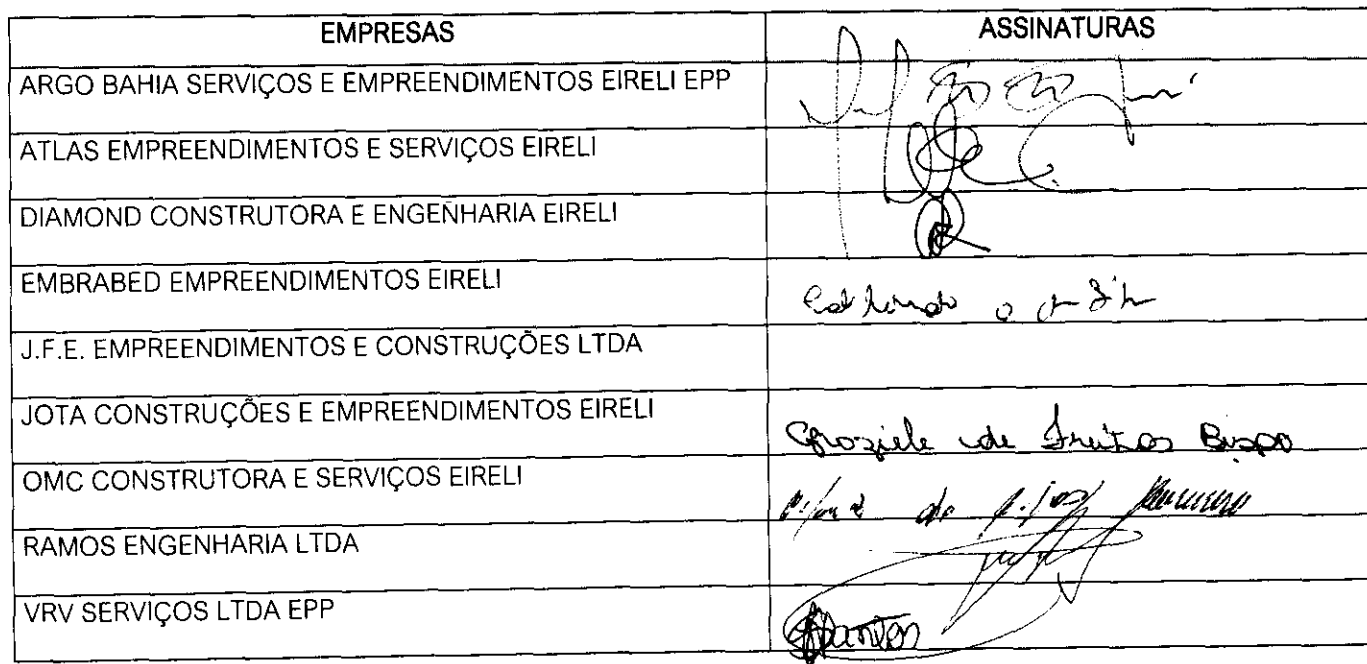 EMPRESAS ASSINATURAS
ARGO BAHIA SERVIÇOS E EMPREENDIMENTOS EIRELI EPP
ATLAS EMPREENDIMENTOS E SERVIÇOS EIRELI
DIAMOND CONSTRUTORA E ENGENHARIA EIRELI
EMBRABED EMPREENDIMENTOS EIRELI
J.F.E. EMPREENDIMENTOS E CONSTRUÇÕES LTDA
JOTA CONSTRUÇÕES E EMPREENDIMENTOS EIRELI Graziele de Freitas Bispo
OMC CONSTRUTORA E SERVIÇOS EIRELI
RAMOS ENGENHARIA LTDA
VRV SERVIÇOS LTDA EPP